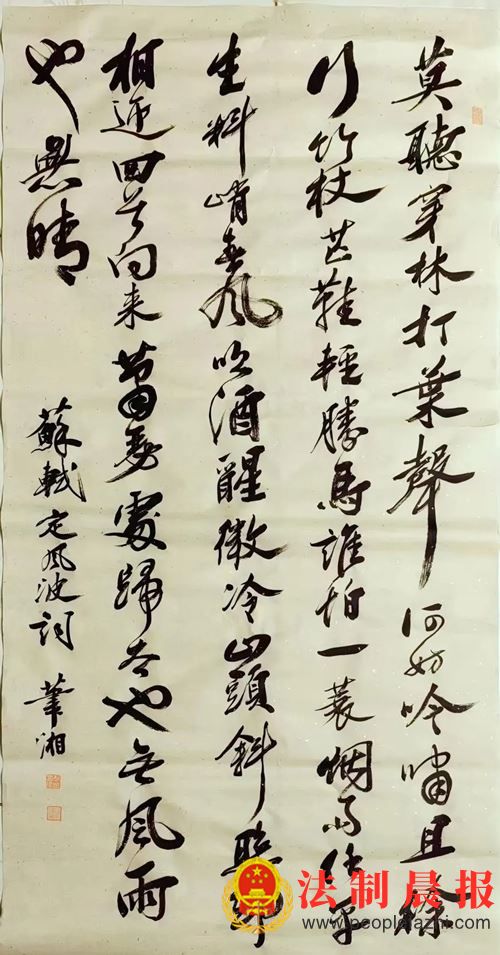 莫聽穿林打葉聲何妨吟嘯且徐
行竹杖芒鞋輕勝馬誰怕一蓑烟雨任平
生料峭春風吹酒醒微冷山頭斜照却
相迎回首向来蕭瑟處歸去也無風雨
也無晴
蘇軾定風波詞 湘
法制晨报
www.peoplefazhi.com